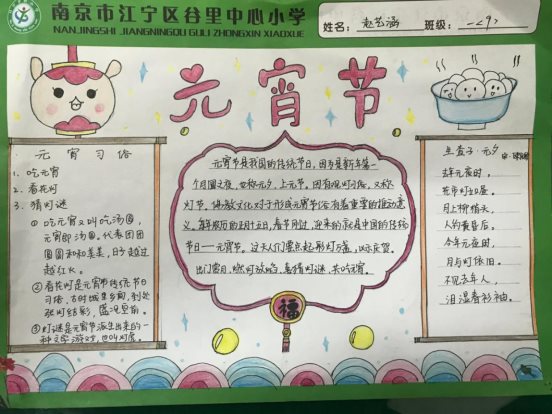 南京市江宁区谷里中心小学
NANJINGSHI JIANGNINGQU GULI ZHONGXIN XIAOXUE
姓名：赵艺涵 班级：一<9>
元宵节
元宵习俗
1、吃元宵
2、看花灯
3、猜灯谜
①吃元宵又叫吃汤圆，
元宵即汤圆。代表团团
圆圆和和美美，日子越过
越红火。
②看花灯是元宵节传统节日
习俗，古时城里乡间，到处
张灯结彩，盛况空前。
③灯谜是元宵节派生出来的一
种文字游戏，也叫灯虎。
元宵节是我国的传统节日，因为是新年第一
个月圆之夜，也称元夕、上元节，因有观灯习俗，又称
灯节。佛教文化对于形成元宵节俗有着重要的推动意
义。每年农历的正月十五日，春节刚过，迎来的就是中国的传统
节日——元宵节。这天人们要点起彩灯万盏，以示庆贺。
出门赏月、燃灯放焰、喜猜灯谜、共吃元宵。
福
生查子·元夕
去年元夜时，
花市灯如昼。
月上柳梢头，
人约黄昏后。
今年元夜时，
月与灯依旧。
不见去年人，
泪湿春衫袖。